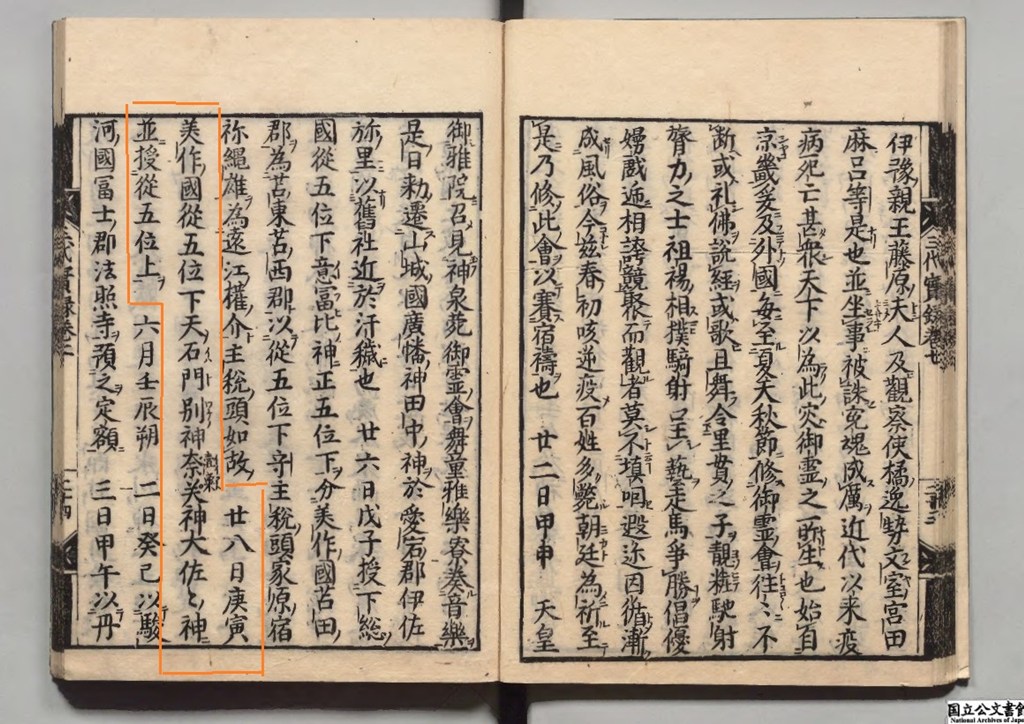 伊豫親王藤原夫人及觀察使橘逸勢文室宮田
麻呂等是也並坐事被誅寃魂成厲近代以来疫
病死亡甚衆天下以為此灾御霊之所生也始自
京畿爰及外國毎至夏天秋節修御霊會往々不
断或礼佛說經或歌且舞令里貫之子靚粧馳射
膂力之士袒裼相撲騎射呈藝走馬爭勝倡優
嫚戱逓相誇競聚而觀者莫不塡咽遐迩因循漸
成風俗今茲春初咳逆疫百姓多斃朝廷為祈至
是乃修此會以賽宿禱也　廿二日甲申　天皇
御雅院召見神泉苑御霊會舞童雅樂寮奏音樂
是日勅遷山城國廣幡神田中神於愛宕郡伊佐
弥里以舊社近於汙穢也　廿六日戊子授下総
國從五位下意富比神正五位下分美作國苫田
郡為苫東苫西郡以從五位下守主税頭家原宿
祢縄雄為遠江權介主税頭如故　廿八日庚寅
美作國從五位下天石門別神奈美神大佐々神
並授從五位上　六月壬辰朔　二日癸巳以駿
河國冨士郡法照寺預之定額　三日甲午以丹
三代實録巻七
國立公文書館
National Archives of Japan